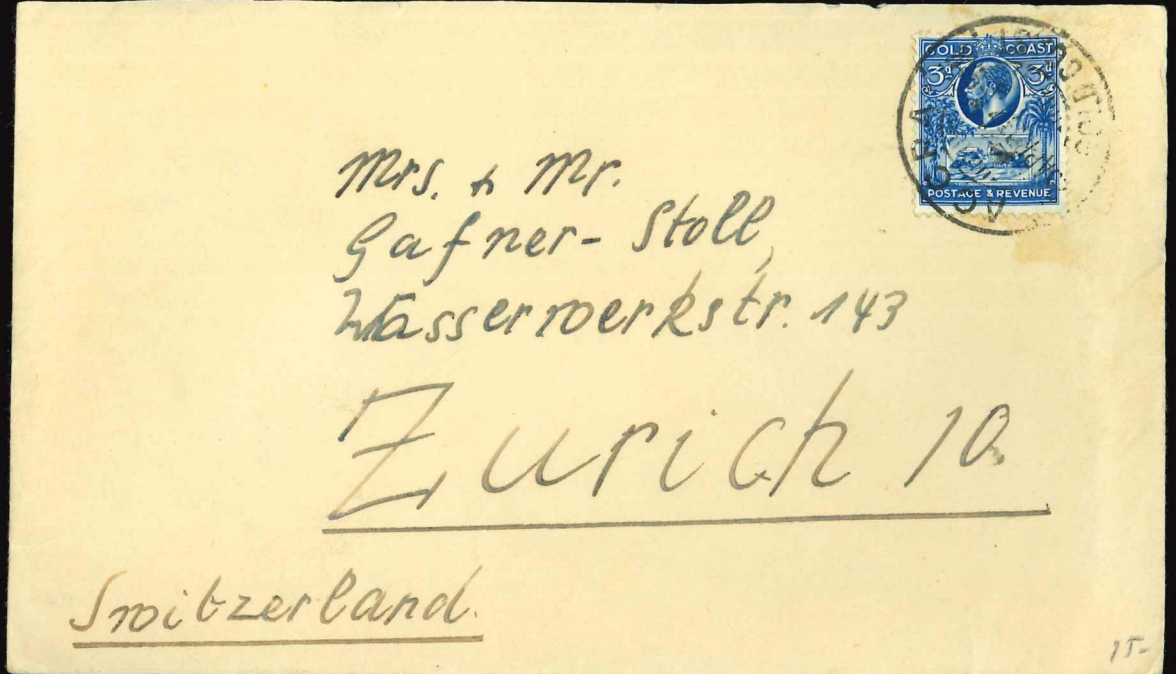 GOLD COAST
3d 3d
POSTAGE & REVENUE
ACCRA
GOLD COAST
Mrs. & Mr.
Gafner-Stoll,
Wasserwerkstr. 143
Zurich 10.
Switzerland.
15-